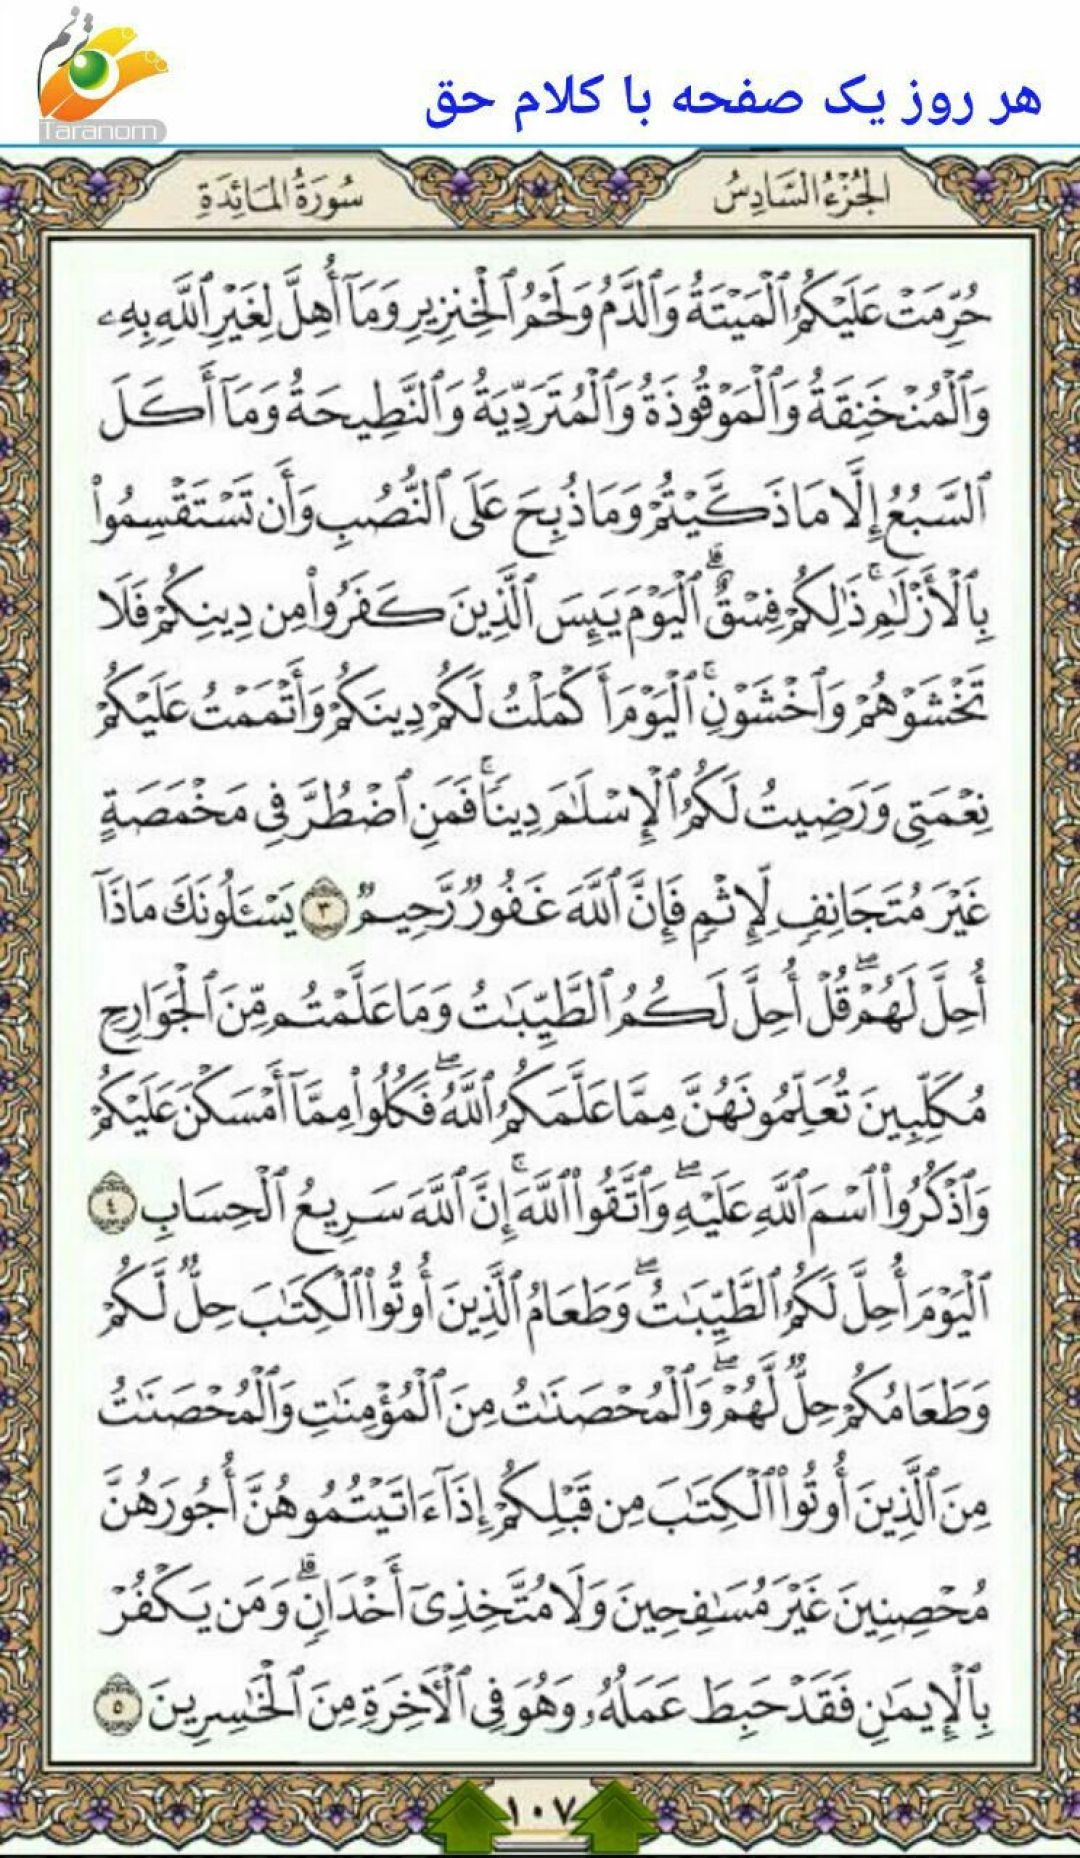 ترنم
Taranom
هر روز یک صفحه با کلام حق
الجُزْءُ السَّادِسُ
سُورَةُ المَائِدَةِ
حُرِّمَتْ عَلَيْكُمُ ٱلْمَيْتَةُ وَٱلدَّمُ وَلَحْمُ ٱلْخِنزِيرِ وَمَآ أُهِلَّ لِغَيْرِ ٱللَّهِ بِهِۦ
وَٱلْمُنْخَنِقَةُ وَٱلْمَوْقُوذَةُ وَٱلْمُتَرَدِّيَةُ وَٱلنَّطِيحَةُ وَمَآ أَكَلَ
ٱلسَّبُعُ إِلَّا مَا ذَكَّيْتُمْ وَمَا ذُبِحَ عَلَى ٱلنُّصُبِ وَأَن تَسْتَقْسِمُوا۟
بِٱلْأَزْلَٰمِ ۚ ذَٰلِكُمْ فِسْقٌ ۗ ٱلْيَوْمَ يَئِسَ ٱلَّذِينَ كَفَرُوا۟ مِن دِينِكُمْ فَلَا
تَخْشَوْهُمْ وَٱخْشَوْنِ ۚ ٱلْيَوْمَ أَكْمَلْتُ لَكُمْ دِينَكُمْ وَأَتْمَمْتُ عَلَيْكُمْ
نِعْمَتِى وَرَضِيتُ لَكُمُ ٱلْإِسْلَٰمَ دِينًا ۚ فَمَنِ ٱضْطُرَّ فِى مَخْمَصَةٍ
غَيْرَ مُتَجَانِفٍ لِّإِثْمٍ فَإِنَّ ٱللَّهَ غَفُورٌ رَّحِيمٌ ٣ يَسْـَٔلُونَكَ مَاذَآ
أُحِلَّ لَهُمْ ۖ قُلْ أُحِلَّ لَكُمُ ٱلطَّيِّبَٰتُ وَمَا عَلَّمْتُم مِّنَ ٱلْجَوَارِحِ
مُكَلِّبِينَ تُعَلِّمُونَهُنَّ مِمَّا عَلَّمَكُمُ ٱللَّهُ ۖ فَكُلُوا۟ مِمَّآ أَمْسَكْنَ عَلَيْكُمْ
وَٱذْكُرُوا۟ ٱسْمَ ٱللَّهِ عَلَيْهِ ۖ وَٱتَّقُوا۟ ٱللَّهَ ۚ إِنَّ ٱللَّهَ سَرِيعُ ٱلْحِسَابِ ٤
ٱلْيَوْمَ أُحِلَّ لَكُمُ ٱلطَّيِّبَٰتُ ۖ وَطَعَامُ ٱلَّذِينَ أُوتُوا۟ ٱلْكِتَٰبَ حِلٌّ لَّكُمْ
وَطَعَامُكُمْ حِلٌّ لَّهُمْ ۖ وَٱلْمُحْصَنَٰتُ مِنَ ٱلْمُؤْمِنَٰتِ وَٱلْمُحْصَنَٰتُ
مِنَ ٱلَّذِينَ أُوتُوا۟ ٱلْكِتَٰبَ مِن قَبْلِكُمْ إِذَآ ءَاتَيْتُمُوهُنَّ أُجُورَهُنَّ
مُحْصِنِينَ غَيْرَ مُسَٰفِحِينَ وَلَا مُتَّخِذِىٓ أَخْدَانٍ ۗ وَمَن يَكْفُرْ
بِٱلْإِيمَٰنِ فَقَدْ حَبِطَ عَمَلُهُۥ وَهُوَ فِى ٱلْأَخِرَةِ مِنَ ٱلْخَٰسِرِينَ ٥
١٠٧